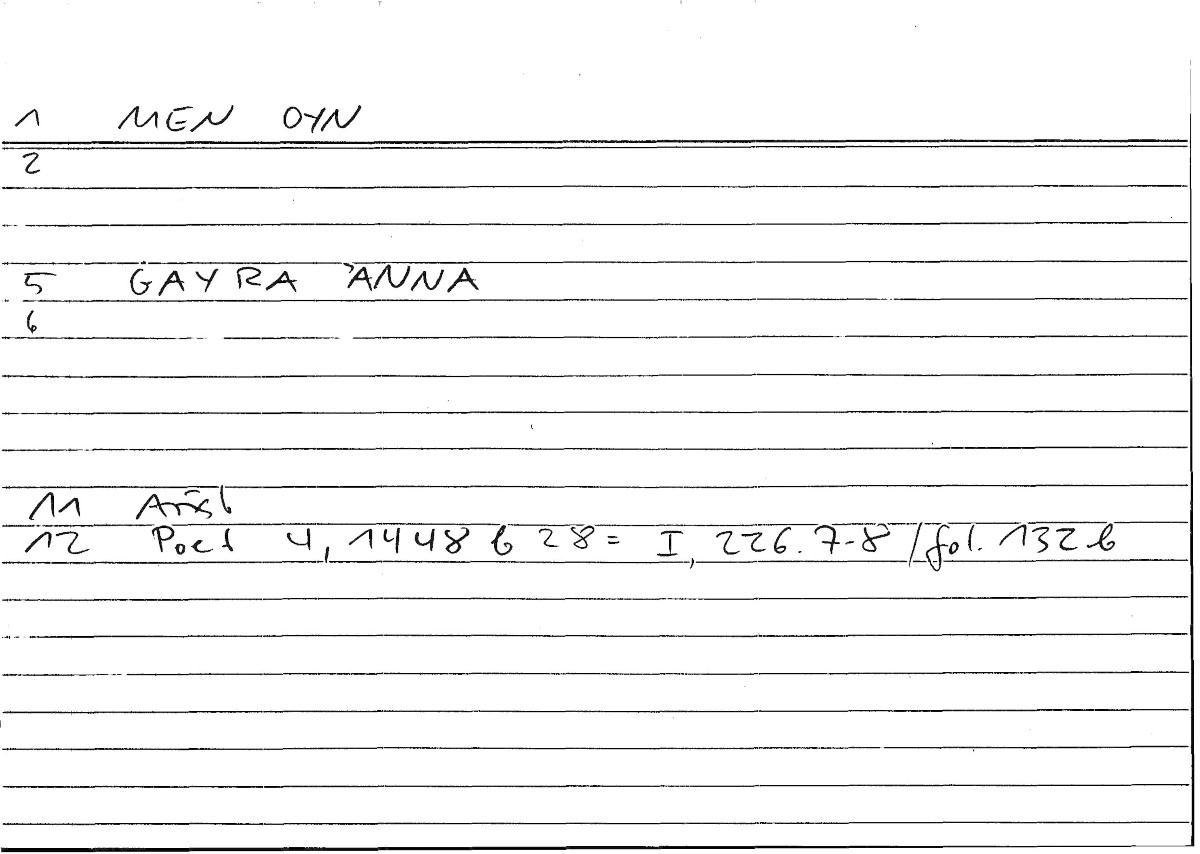 1 MEN OYN
2
5 ĠAYRA ʾANNA
6
11 Arist
12 Poet 4, 1448 b 28 = I, 226.7-8 / fol. 132 b